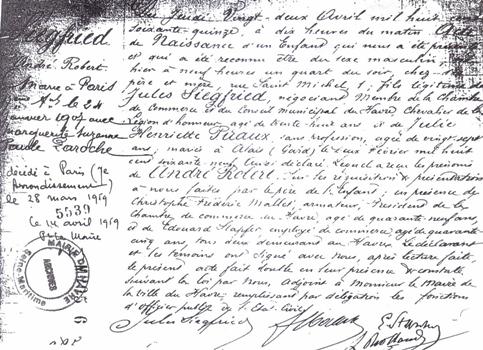 Siegfried
André Robert
Marié à Paris
le 24
janvier 1907 avec
Marguerite Suzanne
Laroche
décédé à Paris (7e
arrondissement)
le 28 mars 1959
5539
le 14 avril 1959
MAIRIE DU HAVRE
ARCHIVES
Seine-Maritime
Du Jeudi Vingt-deux Avril mil huit cent
soixante quinze, à dix heures du matin Acte
de Naissance d'un Enfant qui nous a été présenté
et qui a été reconnu être du sexe masculin, né
hier à neuf heures un quart du soir, chez ses
père et mère, rue Saint Michel, 1; fils légitime de
Jules Siegfried, négociant Membre de la Chambre
de Commerce et du Conseil municipal du Havre Chevalier de la
Légion d'honneur, âgé de trente huit ans et de Julie
Henriette Puaux, sans profession, agée de vingt sept
ans; mariés à Alais (Gard) le deux Février mil huit
cent soixante neuf. Lequel a reçu les prénoms
de André Robert. Sur les réquisition & présentation
à nous faites par le père de l'Enfant; en présence de
Christophe Frédéric Mallet, armateur, Président de la
Chambre de commerce du Havre, âgé de quarante neuf ans,
et de Edouard Stapfer, employé de commerce, âgé de quarante
cinq ans, tous deux demeurant au Havre, Le déclarant
et les témoins ont signé avec Nous, après lecture faite,
le présent acte fait double en leur présence & constaté
suivant la loi par Nous, adjoint à Monsieur le Maire de
la Ville du Havre, remplissant par délégation les fonctions
d'officier public de l'État Civil
Jules Siegfried